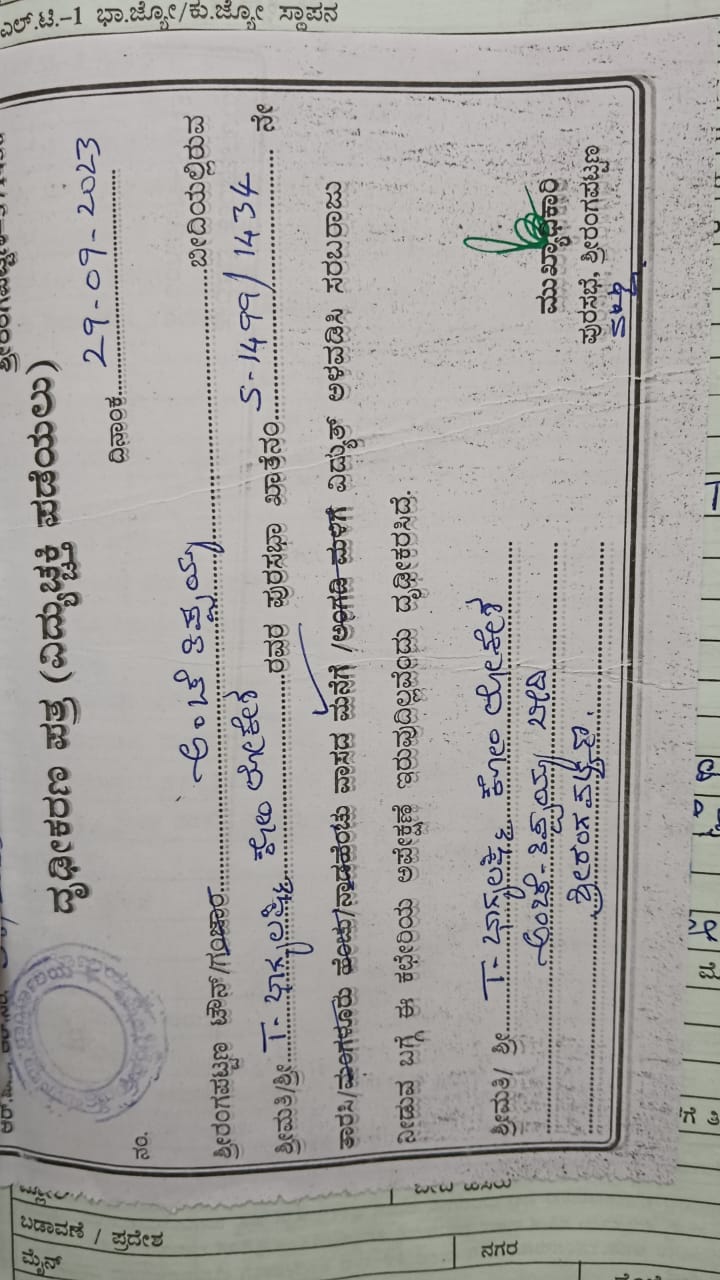 ಎಲ್.ಟಿ.-1 ಭಾ.ಜ್ಯೋ/ಕು.ಜ್ಯೋ ಸ್ಥಾಪನ
ದೃಢೀಕರಣ ಪತ್ರ (ವಿದ್ಯುಚ್ಛಕ್ತಿ ಪಡೆಯಲು)
ನಂ.
ದಿನಾಂಕ 29-09-2023
ಶ್ರೀರಂಗಪಟ್ಟಣ ಟೌನ್/ಗಂಜಾಂ ಅಂಚೆ ತಿಪ್ಪಯ್ಯ ಬೀದಿಯಲ್ಲಿರುವ
ಶ್ರೀಮತಿ/ಶ್ರೀ T- ಭಾಗ್ಯಲಕ್ಷ್ಮಿ ಕೋಂ ಲೋಕೇಶ ರವರ ಪುರಸಭಾ ಖಾತೆನಂ. S-1499/1434 ನೇ
ತಾರಸಿ/ಮಂಗಳೂರು ಹೆಂಚು/ನಾಡಹೆಂಚು ವಾಸದ ಮನೆಗೆ /ಅಂಗಡಿ ಮಳಿಗೆ ವಿದ್ಯುತ್ ಅಳವಡಿಸಿ ಸರಬರಾಜು
ನೀಡುವ ಬಗ್ಗೆ ಈ ಕಛೇರಿಯ ಅಪೇಕ್ಷಣೆ ಇರುವುದಿಲ್ಲವೆಂದು ದೃಢೀಕರಿಸಿದೆ.
ಶ್ರೀಮತಿ/ ಶ್ರೀ T- ಭಾಗ್ಯಲಕ್ಷ್ಮಿ ಕೋಂ ಲೋಕೇಶ
ಅಂಚೆ-ತಿಪ್ಪಯ್ಯ ಬೀದಿ
ಶ್ರೀರಂಗಪಟ್ಟಣ.
ಮುಖ್ಯಾಧಿಕಾರಿ
ಪುರಸಭೆ, ಶ್ರೀರಂಗಪಟ್ಟಣ
ಬಡಾವಣೆ / ಪ್ರದೇಶ
ಮೈನ್
ನಗರ